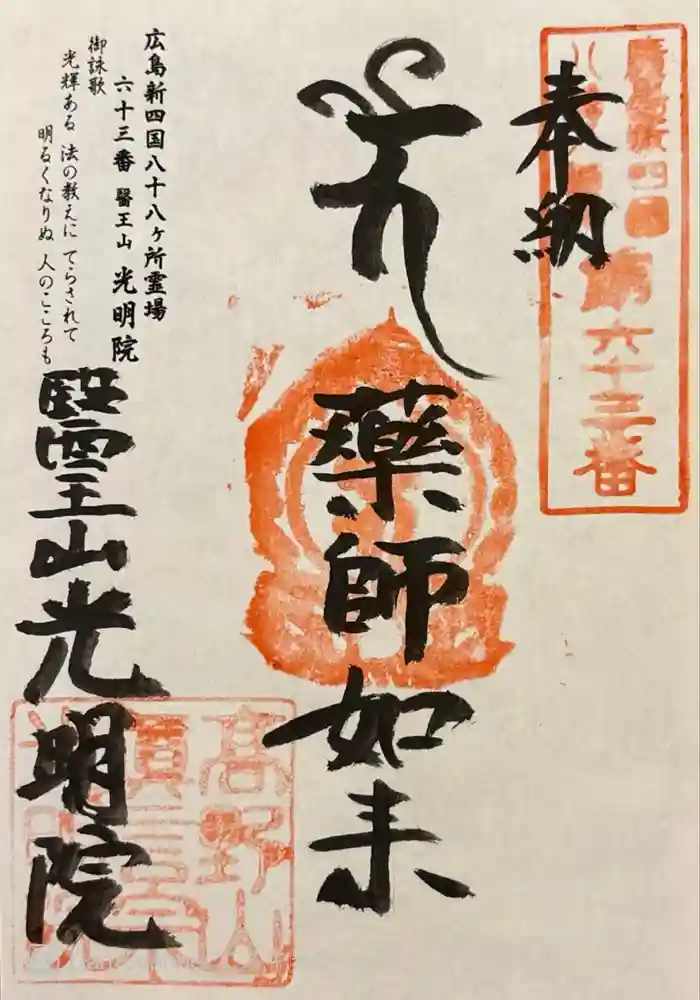 奉納
廣島新四国
八十八ヶ所
第六十三番
薬師如来
醫王山光明院
広島新四国八十八ヶ所霊場
六十三番 醫王山 光明院
御詠歌
光輝ある 法の教えに てらされて
明るくなりぬ 人のこころも
高野山
真言宗
光明院